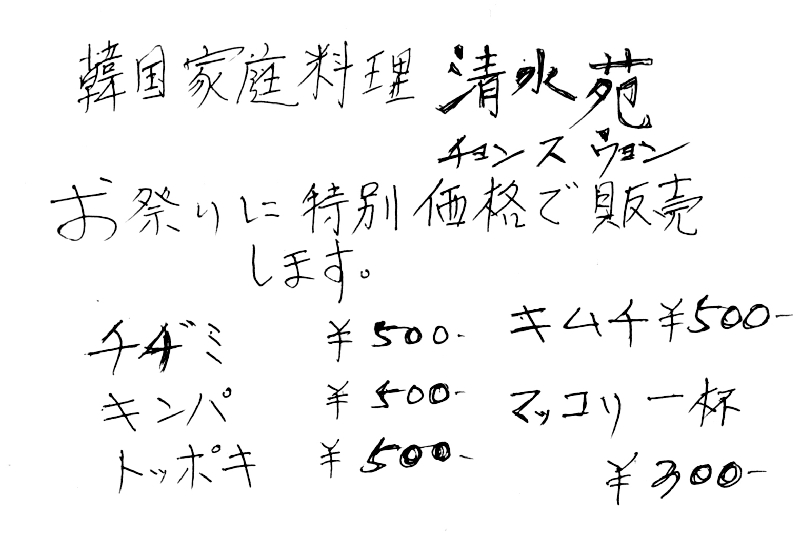 韓国家庭料理 清水苑
チョンス ウョン
お祭りに特別価格で販売
します。
チヂミ ¥500-
キムチ ¥500-
キンパ ¥500-
マッコリ一杯
トッポキ ¥500-
¥300-